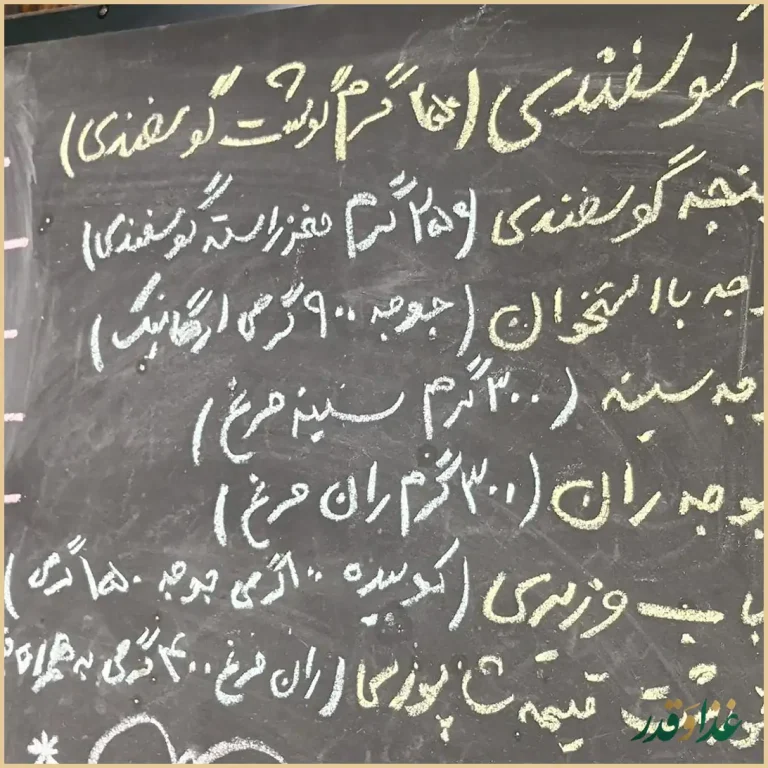 گوسفندی (گرم گوشت گوسفندی)
گوسفندی (۲۵۰ گرم مغز راسته گوسفندی)
با استخوان (جوجه ۹۰۰ گرمی ارگانیک)
سینه (۳۰۰ گرم سینه مرغ)
ران (۳۰۰ گرم ران مرغ)
وزیری (کوبیده ۱۰۰ گرمی جوجه ۱۵۰ گرمی)
قیمه شاپوزی (ران مرغ ۴۰۰ گرمی به همراه
غذا و قدر